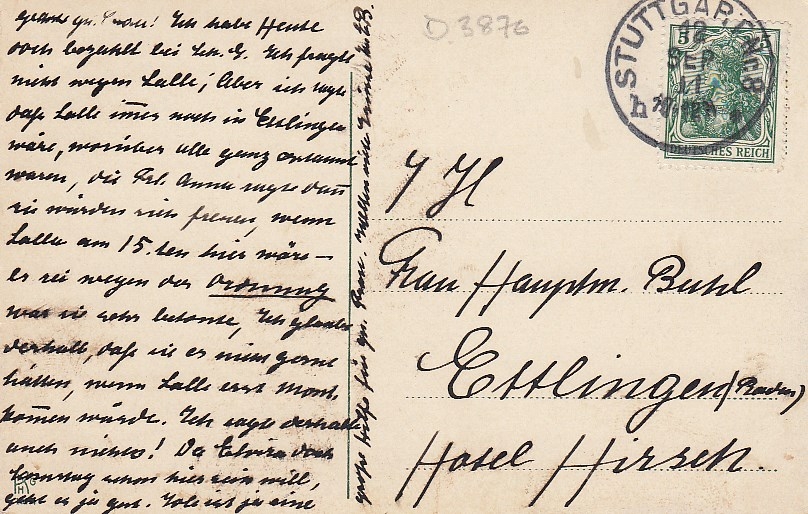 gnäd. gn. Frau! Ich habe Heute
doch bezahlt bei Sch. E. Ich fragte
nicht wegen Lalle; Aber ich sagte
daß Lalle im̄er noch in Ettlingen
wäre, worüber alle ganz erstaunt
waren, die Frl. Anna sagte dan̄
sie würden sich freuen, wenn
Lalle am 15.ten hier wäre —
es sei wegen der Ordnung
was sie sehr betonte, Ich glaube
deshalb, daß sie es nicht gerne
hätten, wenn Lalle erst Mont.
kom̄en würde. Ich sagte deshalb
auch nichts! Da Elvira doch
Sonntag schon hier sein will,
geht es ja gut. Tole ist ja eine
große Hilfe für gn. Frau.
D 3876
STUTTGART Nr. 8
12
SEP
11
5
DEUTSCHES REICH
I H
Frau Hauptm. Buhl
Ettlingen (Baden)
Hotel Hirsch.